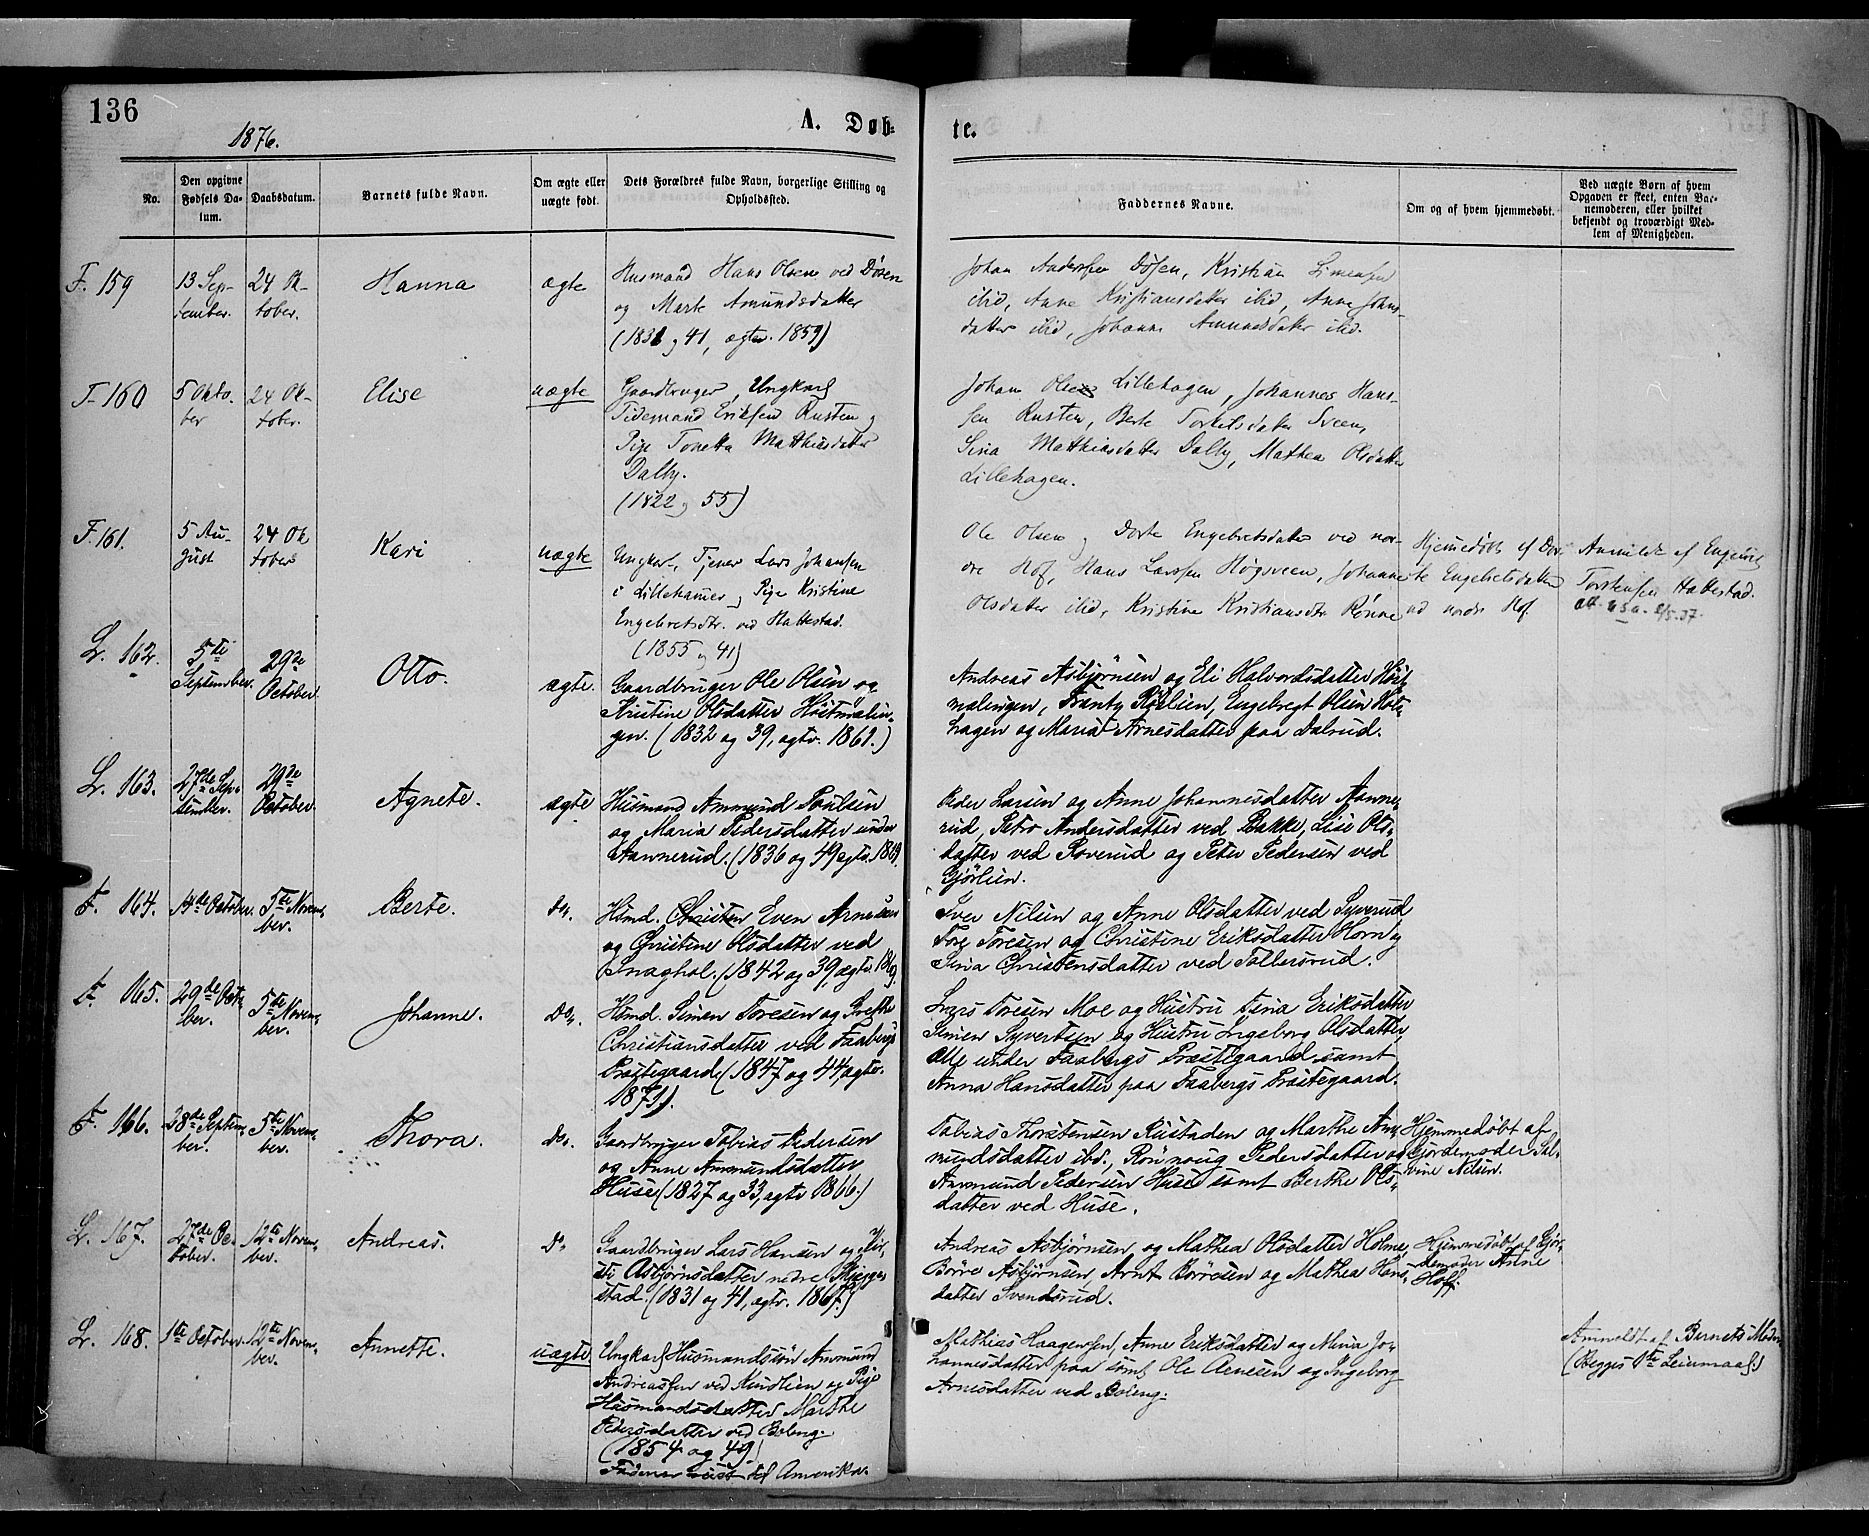 136
1876.
A. Døb-
te.
No.
Den opgivne
Fødsels Da-
tum.
Daabsdatum.
Barnets fulde Navn.
Om ægte eller
uægte født.
Dets Forældres fulde Navn, borgerlige Stilling og
Opholdssted.
Faddernes Navne.
Om og af hvem hjemmedøbt.
Ved uægte Børn af hvem
Opgaven er skeet, enten Bar-
nemoderen, eller hvilket
bekjendt og troværdigt Med-
lem af Menigheden.
F. 159
13 Sep-
tember.
24 Ok-
tober.
Hanna
ægte
Husmand Hans Olsen ved Dösen
og Marte Amundsdatter
(1831 og 41, ægtev. 1859)
Johan Andersen Dösen, Kristian Simensen
ibid, Anne Kristiansdatter ibid, Anne Johns-
datter ibid, Johanne Amundsdatter ibid.
F. 160
5 Okto-
ber
24 Ok-
tober.
Elise
uægte
Gaardbruger, Ungkarl
Tidemand Eriksen Rusten og
Pige Tonetta Matthiasdatter
Dalby.
(1822 og 55)
Johan Olsen Lillehagen, Johannes Hans-
sen Rusten, Berte Torkelsdatter Sveen,
Sina Matthiasdatter Dalby, Mathea Olsdatter
Lillehagen.
F. 161.
5 Au-
gust
24 Ok
tober
Kari
uægte
Ungkarl, Tjener Lars Johansen
i Lillehamer og Pige Kristine
Engebretsdtr. ved Hattestad.
(1855 og 41)
Ole Olsen og Dorte Engebretsdatter ved nor-
dre Hof, Hans Larssen Høgsveen, Johanne
Olsdatter ibid, Kristine Kristiansdtr Rønne
Hjemmedöbt af Dor-
te Engebretsdatter
ved nordr. Hof
Anmeldt af Engebret
Torstensen Hattestad.
L. 162.
5te
September.
29de
October.
Otto.
ægte.
Gaardbruger Ole Olsen og
Kristine Olsdatter Höistmælin-
gen. (1832 og 39, ægtv. 1861.)
Andreas Asbjörnsen og Eli Halvordsdatter Höist-
mælingen, Frants Röslien, Engebregt Olsen Hols-
hagen og Maria Arnesdatter paa Dalrud.
L. 163.
27de Sep-
tember.
29de
October.
Agnete.
ægte
Husmand Ammund Poulsen
og Maria Pedersdatter under
Aannerud. (1836 og 49 ægtv. 1869.
Peder Larsen og Anne Johannesdatter Aanne-
rud, Petro Andersdatter ved Bakke, Lise Ols-
datter ved Roverud og Peter Pedersen ved
Gjörlien.
F. 164.
14de October.
5te Novem-
ber.
Berte.
Do.
Hsmd. Christen Even Arnesen
og Christine Olsdatter ved
Snaghol. (1842 og 39, ægtv. 1869.
Iver Nilsen og Anne Olsdatter ved Syverud,
Tore Toresen og Christine Eriksdatter Horn og
Sina Christensdatter ved Tolbersrud.
F. 165.
29de Octo-
ber.
5te Novem-
ber.
Johanne.
Do.
Hsmd. Simen Toresen og Grethe
Christiansdatter ved Faabergs
Præstegaard (1847 og 44, ægtv.
1871).
Lars Toresen Moe og Hustru Sina Eriksdatter
Simen Syvertsen og Hustru Ingeborg Olsdatter,
alle under Faabergs Præstegaard samt
Anna Hansdatter paa Faabergs Præstegaard.
F. 166.
28de Septem-
ber.
5te Novem-
ber.
Thora.
Do.
Gaardbruger Tobias Pedersen
og Anne Ammundsdatter
Huse (1827 og 33, ægtv 1866.)
Tobias Thorstensen Rustaden og Marthe Am-
mundsdatter ibd., Rönnoug Pedersdatter og
Ammund Pedersen Huse samt Berthe Ols-
datter ved Huse.
Hjemmedöbt af
Gjordemoder Sil-
vine Nilsen.
L. 167.
27de Oc-
tober.
12te Novem-
ber.
Andreas.
Do
Gaardbruger Lars Hansen og Kir-
sti Asbjörnsdatter nedre Skjegge-
stad. (1831 og 41, ægtv. 1867.)
Andreas Asbjörnsen og Mathea Olsdatter Holme,
Börre Asbjörnsen, Arnt Börresen og Mathea Hans-
datter Svendsrud.
Hjemmedöbt af Gjor-
demoder Anne
Hoff.
L. 168.
1te October.
12te Novem-
ber.
Annette.
uægte.
Ungkarl Husmandssön Ammund
Andreassen ved Nustlien og Pige
Husmandsdatter Marthe
Pedersdatter ved Boleng.
(1854 og 49)
Faderen reist til Amerika.
Mathias Haagensen, Anne Eriksdatter og Nina Jo-
hannesdatter paa samt Ole Arnesen og Ingeborg
Arnesdatter ved Boleng.
Anmeldt af Barnets Moder.
(Begges 1te Leiermaal)